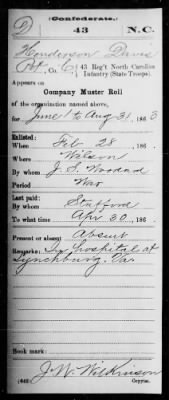 (Confederate.)
D 43 N.C.
Henderson Davis
Pvt, Co. C, 43 Reg't North Carolina
Infantry (State Troops).
Appears on
Company Muster Roll
of the organization named above,
for June 1 to Aug 31, 1863
Enlisted:
When Feb 28, 186
Where Wilson
By whom J. S. Woodard
Period War
Last paid:
By whom Stafford
To what time Apr 30, 186
Present or absent Absent
Remarks: In hospital at
Lynchburg, Va.
Book mark:
J. W. Wilkinson
(642) Copyist.